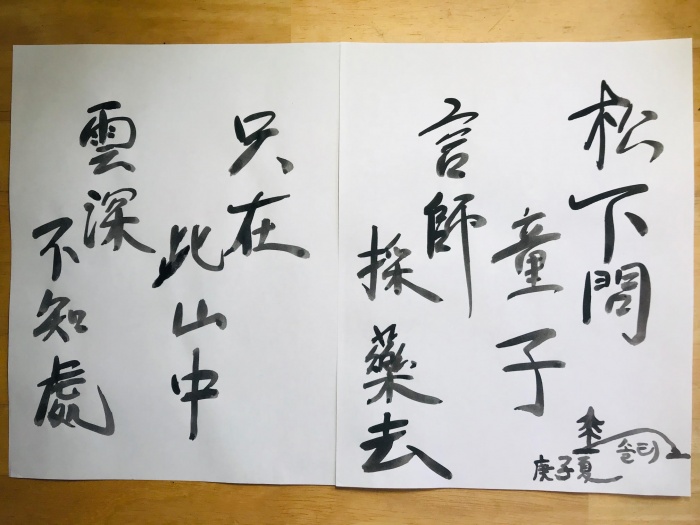 松下問
童子
言師
採藥去
只在
此山中
雲深
不知處
庚子夏
솔티